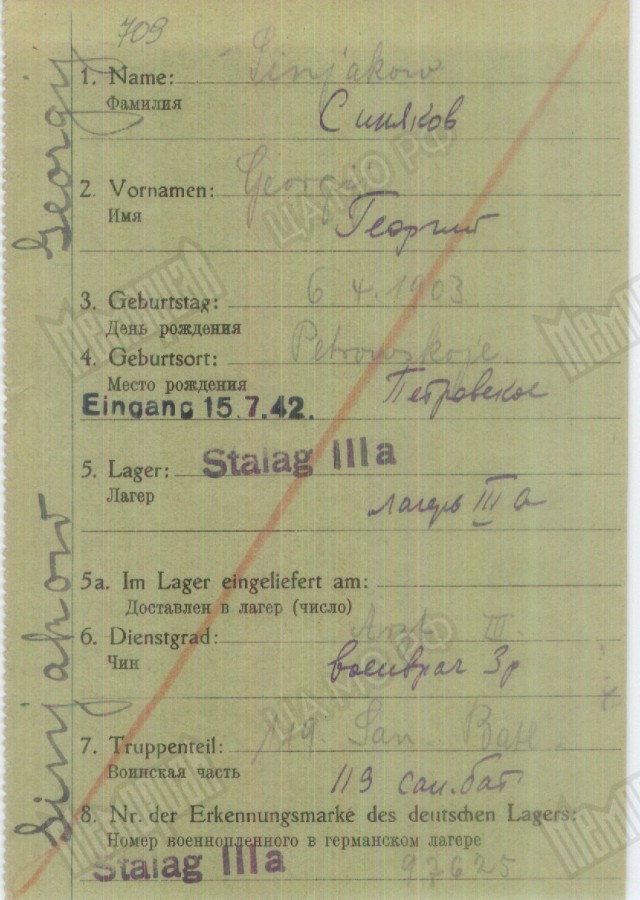 709
1. Name: Sinjakow
Фамилия Синяков
2. Vornamen: Georgij
Имя Георгий
3. Geburtstag: 6 4. 1903
День рождения
4. Geburtsort: Petrowskoje.
Место рождения Петровское
Eingang 15.7.42.
5. Lager: Stalag IIIa
Лагер лагерь III а
5a. Im Lager eingeliefert am:
Доставлен в лагер (число)
6. Dienstgrad: Arzt III.
Чин военврач 3р
7. Truppenteil: 119. San. Batl.
Воинская часть 119 сан.бат
8. Nr. der Erkennungsmarke des deutschen Lagers:
Номер военнопленного в германском лагере
Stalag IIIa 97625
Sinjakow Georgy
МЕМОРИАЛ
ЦАМО РФ
МЕМОРИАЛ
ЦАМО РФ
МЕМОРИАЛ